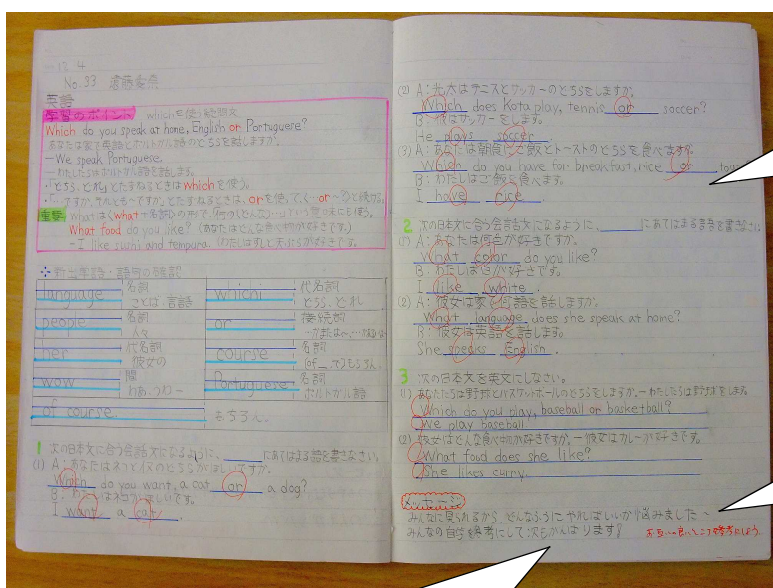 12. 4
No. 33
英語
学習のポイント whichを使う疑問文
Which do you speak at home, English or Portuguese?
あなたは家で英語とポルトガル語のどちらを話しますか。
—We speak Portuguese.
—わたしたちはポルトガル語を話します。
・「どちら、どれ」とたずねるときはwhichを使う。
重要 whatはく what+名詞の形で、「何の(どんな)…」という意味にも使う。
What food do you like? (あなたはどんな食べ物が好きですか。)
—I like sushi and tempura. (わたしはすしと天ぷらが好きです。)
新出単語・語句の確認
language 名詞 ことば、言語 which 代名詞 どちら、どれ
people 名詞 人々 or 接続詞
her 代名詞 彼女の course 名詞 [of_でもちろん]
wow 間 わあ、うわー Portuguese 名詞 ポルトガル語
of course もちろん。
1 次の日本文に合う会話文になるように、____にあてはまる語を書きなさい。
(1) A:あなたはネコとイヌのどちらがほしいですか。
Which do you want, a cat or a dog?
B:わたしはネコがほしいです。
I want a cat.
(2) A:光太はテニスとサッカーのどちらをしますか。
Which does Kota play, tennis or soccer?
B:彼はサッカーをします。
He plays soccer.
(3) A:あなたは朝食にご飯とトーストのどちらを食べますか。
Which do you have for breakfast, rice or
B:わたしはご飯を食べます。
I have rice.
2 次の日本文に合う会話文になるように、____にあてはまる語を書きなさい。
(1) A:あなたは何色が好きですか。
What color do you like?
B:わたしは白が好きです。
I like white.
(2) A:彼女は家で何語を話しますか。
What language does she speak at home?
B:彼女は英語を話します。
She speaks English.
3 次の日本文を英文にしなさい。
(1) あなたたちは野球とバスケットボールのどちらをしますか。—わたしたちは野球をします。
Which do you play, baseball or basketball?
We play baseball.
(2) 彼女はどんな食べ物が好きですか。—彼女はカレーが好きです。
What food does she like?
She likes curry.
メッセージ
みんなに見られるから、どんなふうにやればいいか悩みました〜
みんなの自学を参考にして次もがんばります!
お互いの良いところを参考にしよう。